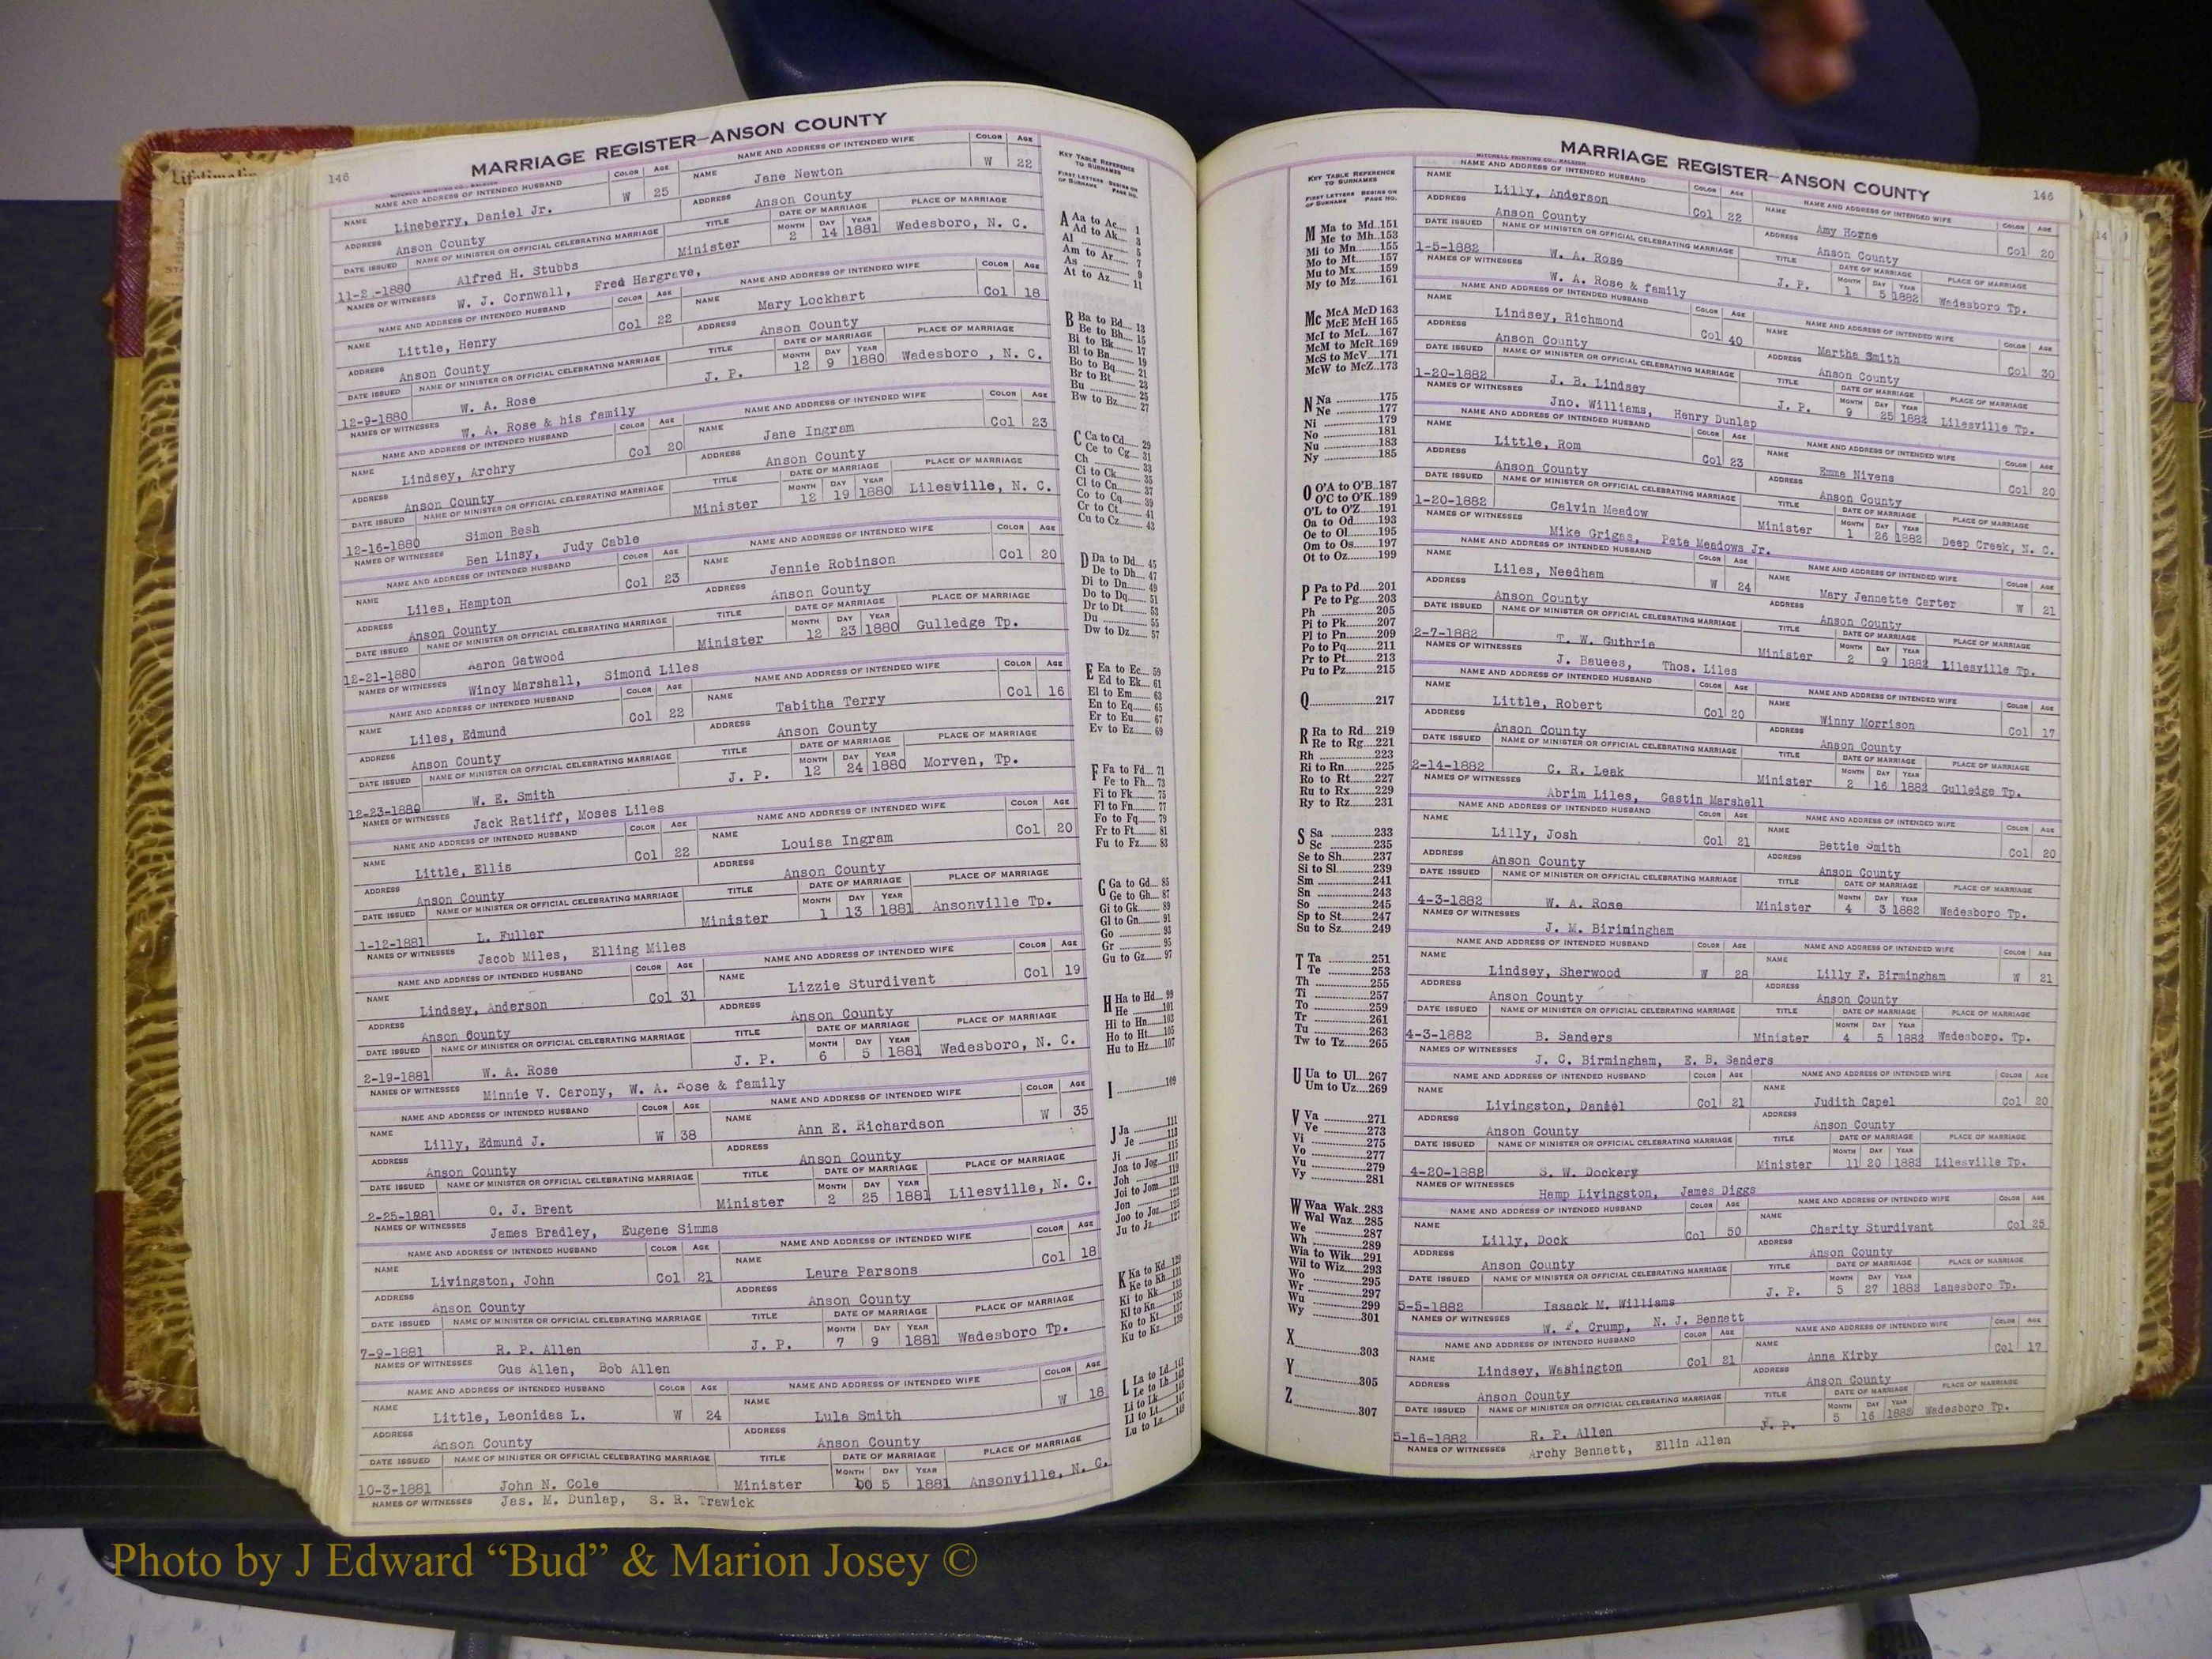 Lifetimelin
MARRIAGE REGISTER—ANSON COUNTY
146
MITCHELL PRINTING CO., RALEIGH
NAME AND ADDRESS OF INTENDED HUSBAND COLOR AGE NAME AND ADDRESS OF INTENDED WIFE COLOR AGE
NAME Lineberry, Daniel Jr. W 25 NAME Jane Newton W 22
ADDRESS Anson County ADDRESS Anson County
DATE ISSUED NAME OF MINISTER OR OFFICIAL CELEBRATING MARRIAGE TITLE DATE OF MARRIAGE MONTH DAY YEAR PLACE OF MARRIAGE
Alfred H. Stubbs Minister 2 14 1881 Wadesboro, N. C.
NAMES OF WITNESSES W. J. Cornwall, Fred Hargrave,
NAME AND ADDRESS OF INTENDED HUSBAND COLOR AGE NAME AND ADDRESS OF INTENDED WIFE COLOR AGE
NAME Little, Henry Col 22 NAME Mary Lockhart Col 18
ADDRESS Anson County ADDRESS Anson County
DATE ISSUED NAME OF MINISTER OR OFFICIAL CELEBRATING MARRIAGE TITLE DATE OF MARRIAGE MONTH DAY YEAR PLACE OF MARRIAGE
12-9-1880 W. A. Rose J. P. 12 9 1880 Wadesboro , N. C.
NAMES OF WITNESSES W. A. Rose & his family
NAME AND ADDRESS OF INTENDED HUSBAND COLOR AGE NAME AND ADDRESS OF INTENDED WIFE COLOR AGE
NAME Lindsey, Archry Col 20 NAME Jane Ingram Col 23
ADDRESS Anson County ADDRESS Anson County
DATE ISSUED NAME OF MINISTER OR OFFICIAL CELEBRATING MARRIAGE TITLE DATE OF MARRIAGE MONTH DAY YEAR PLACE OF MARRIAGE
12-16-1880 Simon Besh Minister 12 19 1880 Lilesville, N. C.
NAMES OF WITNESSES Ben Linsy, Judy Cable
NAME AND ADDRESS OF INTENDED HUSBAND COLOR AGE NAME AND ADDRESS OF INTENDED WIFE COLOR AGE
NAME Liles, Hampton Col 23 NAME Jennie Robinson Col 20
ADDRESS Anson County ADDRESS Anson County
DATE ISSUED NAME OF MINISTER OR OFFICIAL CELEBRATING MARRIAGE TITLE DATE OF MARRIAGE MONTH DAY YEAR PLACE OF MARRIAGE
12-21-1880 Aaron Gatwood Minister 12 23 1880 Gulledge Tp.
NAMES OF WITNESSES Wincy Marshall, Simond Liles
NAME AND ADDRESS OF INTENDED HUSBAND COLOR AGE NAME AND ADDRESS OF INTENDED WIFE COLOR AGE
NAME Liles, Edmund Col 22 NAME Tabitha Terry Col 16
ADDRESS Anson County ADDRESS Anson County
DATE ISSUED NAME OF MINISTER OR OFFICIAL CELEBRATING MARRIAGE TITLE DATE OF MARRIAGE MONTH DAY YEAR PLACE OF MARRIAGE
12-23-1880 W. E. Smith J. P. 12 24 1880 Morven, Tp.
NAMES OF WITNESSES Jack Ratliff, Moses Liles
NAME AND ADDRESS OF INTENDED HUSBAND COLOR AGE NAME AND ADDRESS OF INTENDED WIFE COLOR AGE
NAME Little, Ellis Col 22 NAME Louisa Ingram Col 20
ADDRESS Anson County ADDRESS Anson County
DATE ISSUED NAME OF MINISTER OR OFFICIAL CELEBRATING MARRIAGE TITLE DATE OF MARRIAGE MONTH DAY YEAR PLACE OF MARRIAGE
1-12-1881 L. Fuller Minister 1 13 1881 Ansonville Tp.
NAMES OF WITNESSES Jacob Miles, Elling Miles
NAME AND ADDRESS OF INTENDED HUSBAND COLOR AGE NAME AND ADDRESS OF INTENDED WIFE COLOR AGE
NAME Lindsey, Anderson Col 31 NAME Lizzie Sturdivant Col 19
ADDRESS Anson County ADDRESS Anson County
DATE ISSUED NAME OF MINISTER OR OFFICIAL CELEBRATING MARRIAGE TITLE DATE OF MARRIAGE MONTH DAY YEAR PLACE OF MARRIAGE
2-19-1881 W. A. Rose J. P. 6 5 1881 Wadesboro, N. C.
NAMES OF WITNESSES Minnie V. Carony, W. A. Rose & family
NAME AND ADDRESS OF INTENDED HUSBAND COLOR AGE NAME AND ADDRESS OF INTENDED WIFE COLOR AGE
NAME Lilly, Edmund J. W 38 NAME Ann E. Richardson W 35
ADDRESS Anson County ADDRESS Anson County
DATE ISSUED NAME OF MINISTER OR OFFICIAL CELEBRATING MARRIAGE TITLE DATE OF MARRIAGE MONTH DAY YEAR PLACE OF MARRIAGE
2-25-1881 O. J. Brent Minister 2 25 1881 Lilesville, N. C.
NAMES OF WITNESSES James Bradley, Eugene Simms
NAME AND ADDRESS OF INTENDED HUSBAND COLOR AGE NAME AND ADDRESS OF INTENDED WIFE COLOR AGE
NAME Livingston, John Col 21 NAME Laura Parsons Col 18
ADDRESS Anson County ADDRESS Anson County
DATE ISSUED NAME OF MINISTER OR OFFICIAL CELEBRATING MARRIAGE TITLE DATE OF MARRIAGE MONTH DAY YEAR PLACE OF MARRIAGE
7-9-1881 R. P. Allen J. P. 7 9 1881 Wadesboro Tp.
NAMES OF WITNESSES Gus Allen, Bob Allen
NAME AND ADDRESS OF INTENDED HUSBAND COLOR AGE NAME AND ADDRESS OF INTENDED WIFE COLOR AGE
NAME Little, Leonidas L. W 24 NAME Lula Smith W 18
ADDRESS Anson County ADDRESS Anson County
DATE ISSUED NAME OF MINISTER OR OFFICIAL CELEBRATING MARRIAGE TITLE DATE OF MARRIAGE MONTH DAY YEAR PLACE OF MARRIAGE
10-3-1881 John N. Cole Minister 5 1881 Ansonville, N. C.
NAMES OF WITNESSES Jas. M. Dunlap, S. R. Trawick
KEY TABLE REFERENCE
TO SURNAMES
FIRST LETTERS OF SURNAME BEGINS ON PAGE NO.
A Aa to Ac 1
Ad to Ak 3
Al 5
Am to Ar 7
As 9
At to Az 11
B Ba to Bd 13
Be to Bh 15
Bi to Bk 17
Bl to Bn 19
Bo to Bq 21
Br to Bt 23
Bu 25
Bw to Bz 27
C Ca to Cd 29
Ce to Cg 31
Ch 33
Ci to Ck 35
Cl to Cn 37
Co to Cq 39
Cr to Ct 41
Cu to Cz 43
D Da to Dd 45
De to Dh 47
Di to Dn 49
Do to Dq 51
Dr to Dt 53
Du 55
Dw to Dz 57
E Ea to Ec 59
Ed to Ek 61
El to Em 63
En to Eq 65
Er to Eu 67
Ev to Ez 69
F Fa to Fd 71
Fe to Fh 73
Fi to Fk 75
Fl to Fn 77
Fo to Fq 79
Fr to Ft 81
Fu to Fz 83
G Ga to Gd 85
Ge to Gh 87
Gi to Gk 89
Gl to Gn 91
Go 93
Gr 95
Gu to Gz 97
H Ha to Hd 99
He 101
Hi to Hn 103
Ho to Ht 105
Hu to Hz 107
I 109
J Ja 111
Je 113
Ji 115
Joa to Jog 117
Joh 119
Joi to Jom 121
Jon 123
Joo to Joz 125
Ju to Jz 127
K Ka to Kd 129
Ke to Kh 131
Ki to Kk 133
Kl to Kn 135
Ko to Kt 137
Ku to Kz 139
L La to Ld 141
Le to Lh 143
Li to Lk 145
Ll to Lt 147
Lu to Lz 149
MARRIAGE REGISTER—ANSON COUNTY
146
MITCHELL PRINTING CO., RALEIGH
KEY TABLE REFERENCE
TO SURNAMES
FIRST LETTERS OF SURNAME BEGINS ON PAGE NO.
M Ma to Md 151
Me to Mh 153
Mi to Mn 155
Mo to Mt 157
Mu to Mx 159
My to Mz 161
Mc McA McD 163
McE McH 165
McI to McL 167
McM to McR 169
McS to McV 171
McW to McZ 173
N Na 175
Ne 177
Ni 179
No 181
Nu 183
Ny 185
O O'A to O'B 187
O'C to O'K 189
O'L to O'Z 191
Oa to Od 193
Oe to Ol 195
Om to Os 197
Ot to Oz 199
P Pa to Pd 201
Pe to Pg 203
Ph 205
Pi to Pk 207
Pl to Pn 209
Po to Pq 211
Pr to Pt 213
Pu to Pz 215
Q 217
R Ra to Rd 219
Re to Rg 221
Rh 223
Ri to Rn 225
Ro to Rt 227
Ru to Rx 229
Ry to Rz 231
S Sa 233
Sc 235
Se to Sh 237
Si to Sl 239
Sm 241
Sn 243
So 245
Sp to St 247
Su to Sz 249
T Ta 251
Te 253
Th 255
Ti 257
To 259
Tr 261
Tu 263
Tw to Tz 265
U Ua to Ul 267
Um to Uz 269
V Va 271
Ve 273
Vi 275
Vo 277
Vu 279
Vy 281
W Waa Wak 283
Wal Waz 285
We 287
Wh 289
Wia to Wik 291
Wil to Wiz 293
Wo 295
Wr 297
Wu 299
Wy 301
X 303
Y 305
Z 307
NAME AND ADDRESS OF INTENDED HUSBAND COLOR AGE NAME AND ADDRESS OF INTENDED WIFE COLOR AGE
NAME Lilly, Anderson Col 22 NAME Amy Horne Col 20
ADDRESS Anson County ADDRESS Anson County
DATE ISSUED NAME OF MINISTER OR OFFICIAL CELEBRATING MARRIAGE TITLE DATE OF MARRIAGE MONTH DAY YEAR PLACE OF MARRIAGE
1-5-1882 W. A. Rose J. P. 1 5 1882 Wadesboro Tp.
NAMES OF WITNESSES W. A. Rose & family
NAME AND ADDRESS OF INTENDED HUSBAND COLOR AGE NAME AND ADDRESS OF INTENDED WIFE COLOR AGE
NAME Lindsey, Richmond Col 40 NAME Martha Smith Col 30
ADDRESS Anson County ADDRESS Anson County
DATE ISSUED NAME OF MINISTER OR OFFICIAL CELEBRATING MARRIAGE TITLE DATE OF MARRIAGE MONTH DAY YEAR PLACE OF MARRIAGE
1-20-1882 J. B. Lindsey J. P. 9 25 1882 Lilesville Tp.
NAMES OF WITNESSES Jno. Williams, Henry Dunlap
NAME AND ADDRESS OF INTENDED HUSBAND COLOR AGE NAME AND ADDRESS OF INTENDED WIFE COLOR AGE
NAME Little, Rom Col 23 NAME Emma Nivens Col 20
ADDRESS Anson County ADDRESS Anson County
DATE ISSUED NAME OF MINISTER OR OFFICIAL CELEBRATING MARRIAGE TITLE DATE OF MARRIAGE MONTH DAY YEAR PLACE OF MARRIAGE
1-20-1882 Calvin Meadow Minister 1 26 1882 Deep Creek, N. C.
NAMES OF WITNESSES Mike Griggs, Pete Meadows Jr.
NAME AND ADDRESS OF INTENDED HUSBAND COLOR AGE NAME AND ADDRESS OF INTENDED WIFE COLOR AGE
NAME Liles, Needham W 24 NAME Mary Jennette Carter W 21
ADDRESS Anson County ADDRESS Anson County
DATE ISSUED NAME OF MINISTER OR OFFICIAL CELEBRATING MARRIAGE TITLE DATE OF MARRIAGE MONTH DAY YEAR PLACE OF MARRIAGE
2-7-1882 T. W. Guthrie Minister 2 9 1882 Lilesville Tp.
NAMES OF WITNESSES J. Bauees, Thos. Liles
NAME AND ADDRESS OF INTENDED HUSBAND COLOR AGE NAME AND ADDRESS OF INTENDED WIFE COLOR AGE
NAME Little, Robert Col 20 NAME Winny Morrison Col 17
ADDRESS Anson County ADDRESS Anson County
DATE ISSUED NAME OF MINISTER OR OFFICIAL CELEBRATING MARRIAGE TITLE DATE OF MARRIAGE MONTH DAY YEAR PLACE OF MARRIAGE
2-14-1882 C. R. Leak Minister 2 16 1882 Gulledge Tp.
NAMES OF WITNESSES Abrim Liles, Castin Marshell
NAME AND ADDRESS OF INTENDED HUSBAND COLOR AGE NAME AND ADDRESS OF INTENDED WIFE COLOR AGE
NAME Lilly, Josh Col 21 NAME Bettie Smith Col 20
ADDRESS Anson County ADDRESS Anson County
DATE ISSUED NAME OF MINISTER OR OFFICIAL CELEBRATING MARRIAGE TITLE DATE OF MARRIAGE MONTH DAY YEAR PLACE OF MARRIAGE
4-3-1882 W. A. Rose Minister 4 3 1882 Wadesboro Tp.
NAMES OF WITNESSES J. M. Birimingham
NAME AND ADDRESS OF INTENDED HUSBAND COLOR AGE NAME AND ADDRESS OF INTENDED WIFE COLOR AGE
NAME Lindsey, Sherwood W 28 NAME Lilly F. Birmingham W 21
ADDRESS Anson County ADDRESS Anson County
DATE ISSUED NAME OF MINISTER OR OFFICIAL CELEBRATING MARRIAGE TITLE DATE OF MARRIAGE MONTH DAY YEAR PLACE OF MARRIAGE
4-3-1882 B. Sanders Minister 4 5 1882 Wadesboro. Tp.
NAMES OF WITNESSES J. C. Birmingham, E. B. Sanders
NAME AND ADDRESS OF INTENDED HUSBAND COLOR AGE NAME AND ADDRESS OF INTENDED WIFE COLOR AGE
NAME Livingston, Daniel Col 21 NAME Judith Capel Col 20
ADDRESS Anson County ADDRESS Anson County
DATE ISSUED NAME OF MINISTER OR OFFICIAL CELEBRATING MARRIAGE TITLE DATE OF MARRIAGE MONTH DAY YEAR PLACE OF MARRIAGE
4-20-1882 S. W. Dockery Minister 11 20 1882 Lilesville Tp.
NAMES OF WITNESSES Hamp Livingston, James Diggs
NAME AND ADDRESS OF INTENDED HUSBAND COLOR AGE NAME AND ADDRESS OF INTENDED WIFE COLOR AGE
NAME Lilly, Dock Col 50 NAME Charity Sturdivant Col 25
ADDRESS Anson County ADDRESS Anson County
DATE ISSUED NAME OF MINISTER OR OFFICIAL CELEBRATING MARRIAGE TITLE DATE OF MARRIAGE MONTH DAY YEAR PLACE OF MARRIAGE
5-5-1882 Issack M. Williams J. P. 5 27 1882 Lanesboro Tp.
NAMES OF WITNESSES W. F. Crump, N. J. Bennett
NAME AND ADDRESS OF INTENDED HUSBAND COLOR AGE NAME AND ADDRESS OF INTENDED WIFE COLOR AGE
NAME Lindsey, Washington Col 21 NAME Anna Kirby Col 17
ADDRESS Anson County ADDRESS Anson County
DATE ISSUED NAME OF MINISTER OR OFFICIAL CELEBRATING MARRIAGE TITLE DATE OF MARRIAGE MONTH DAY YEAR PLACE OF MARRIAGE
5-16-1882 R. P. Allen J. P. 5 16 1882 Wadesboro Tp.
NAMES OF WITNESSES Archy Bennett, Ellin Allen
14
Photo by J Edward “Bud” & Marion Josey ©